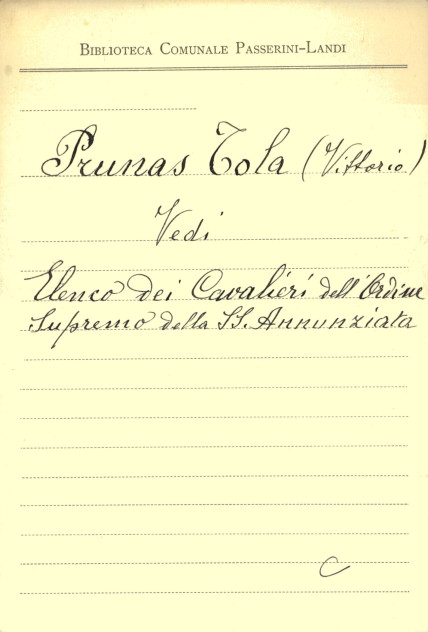 Biblioteca Comunale Passerini-Landi
Prunas Tola (Vittorio)
Vedi
Elenco dei Cavalieri dell'Ordine
Supremo della SS. Annunziata
C